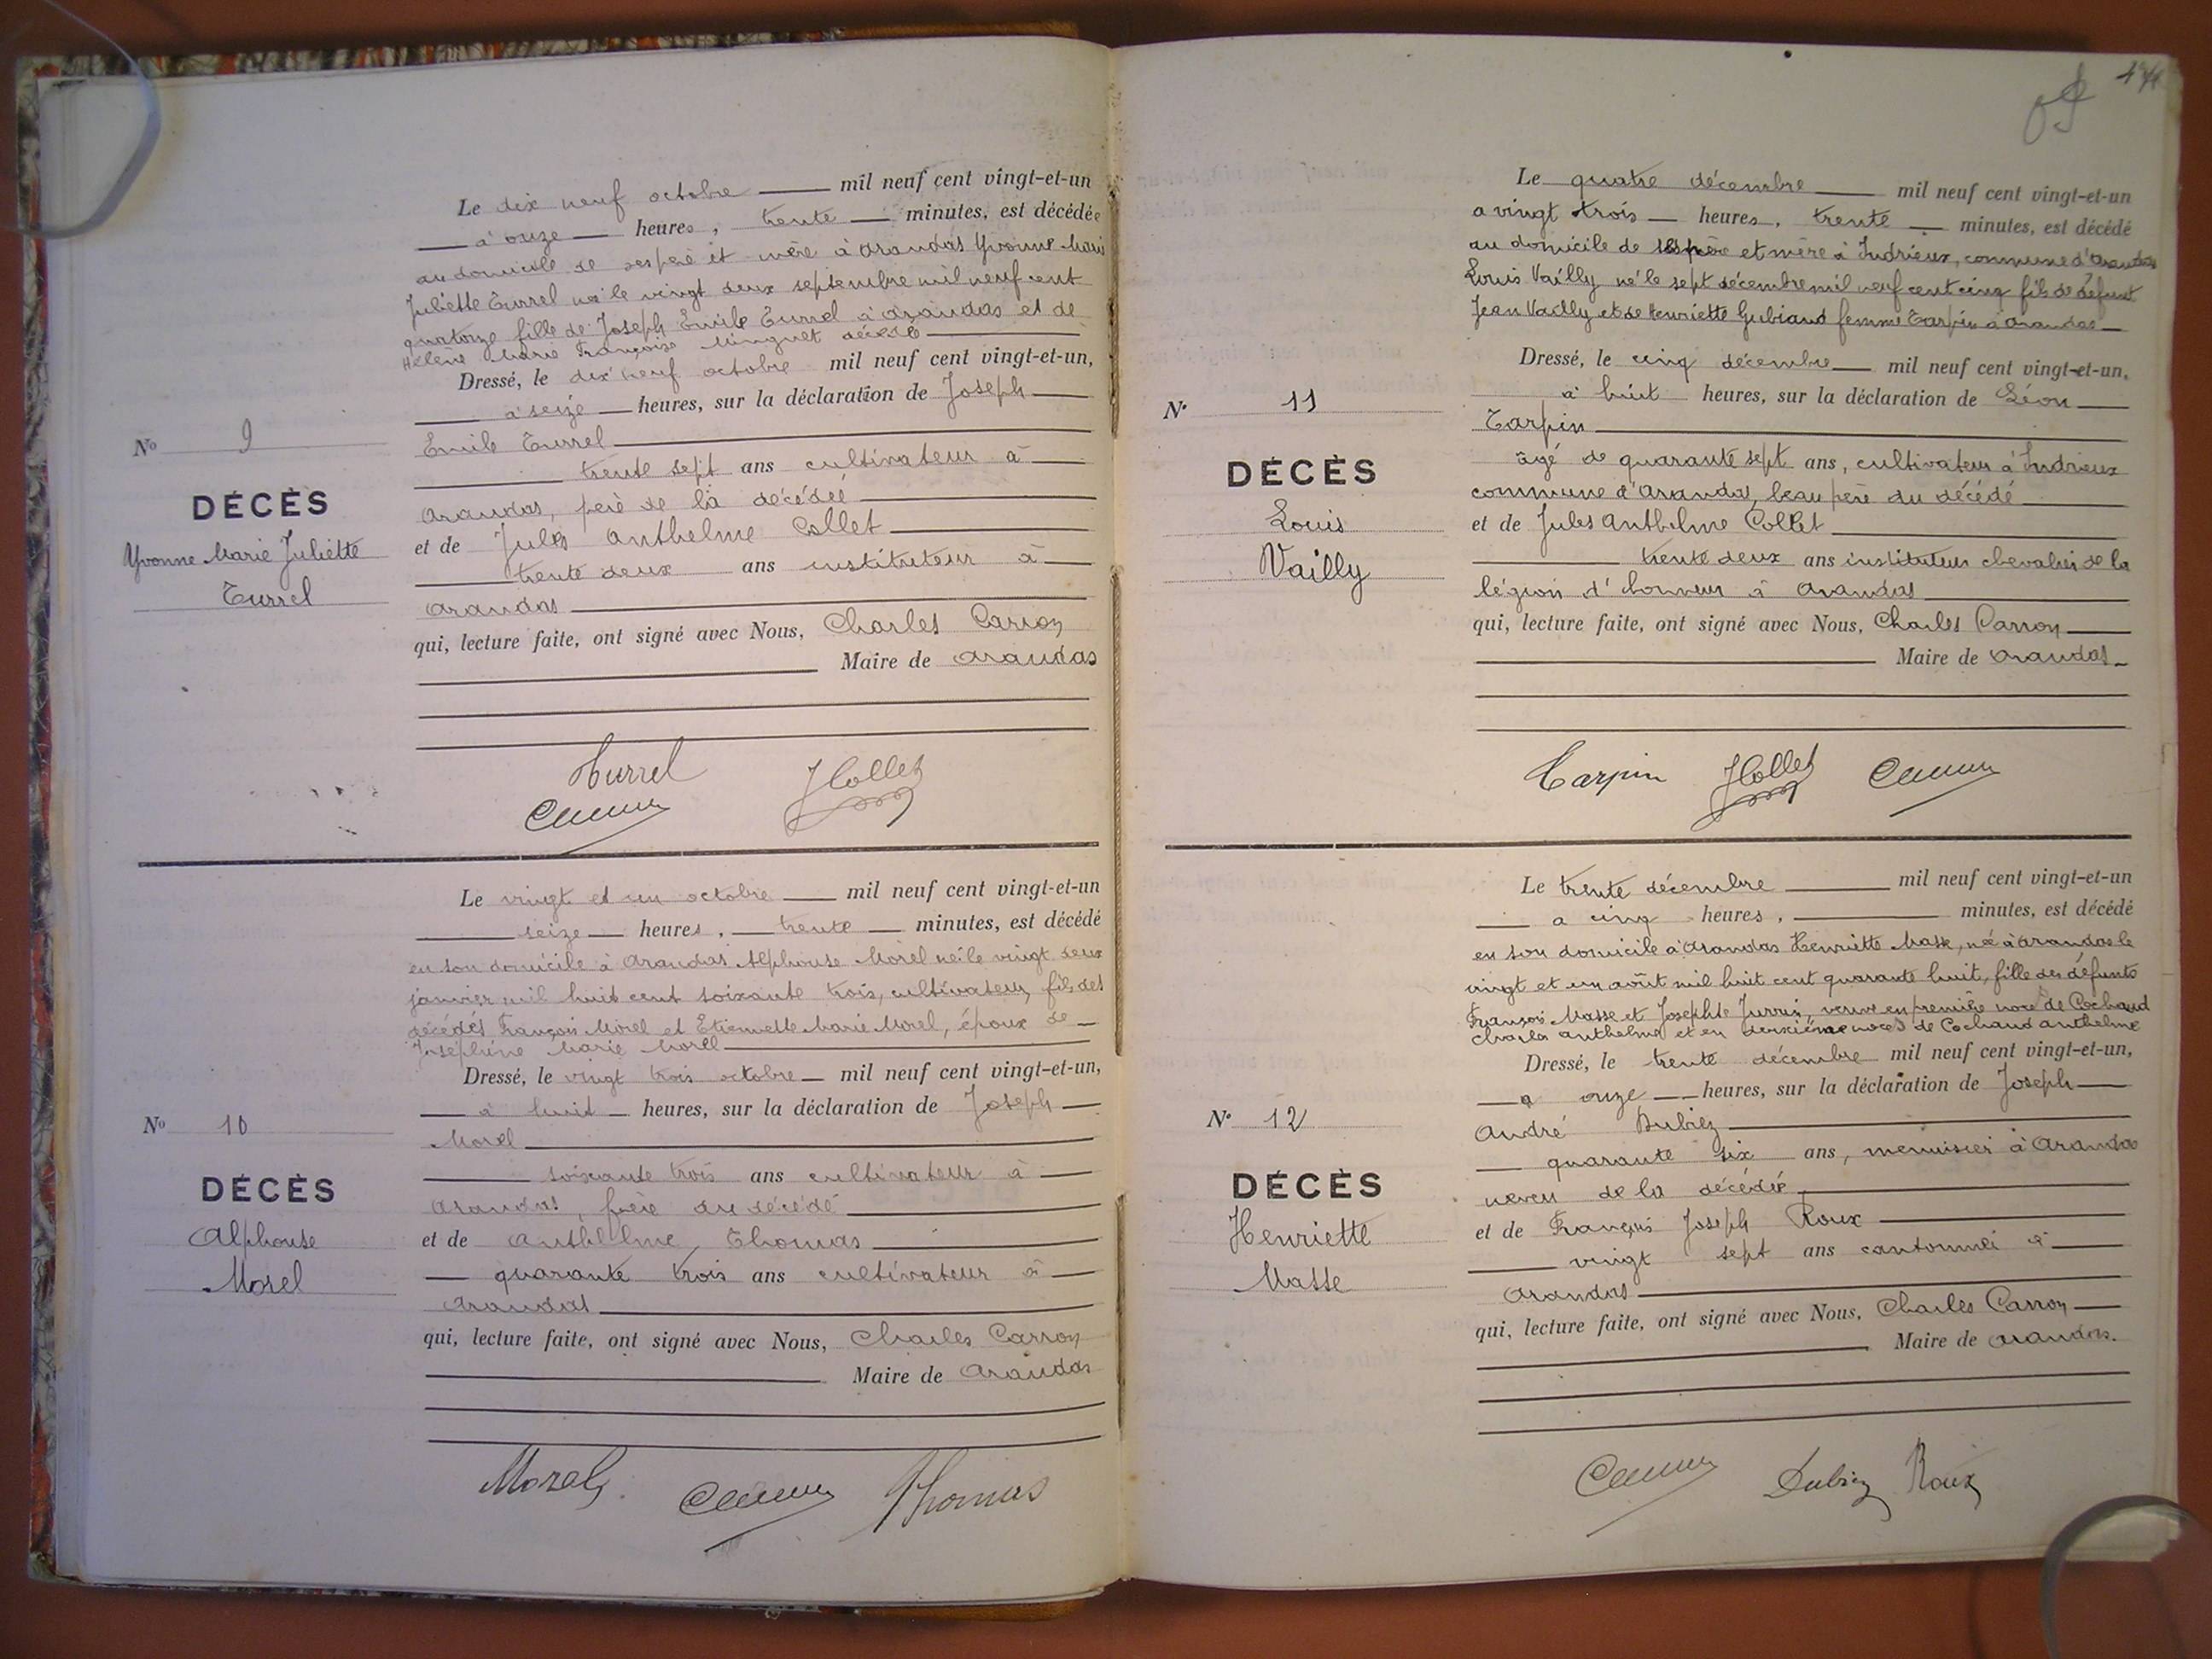 Le dix neuf octobre mil neuf cent vingt-et-un
à onze heures, trente minutes, est décédée
au domicile de ses père et mère à Arandas Yvonne Marie
Juliette Turrel née le vingt deux septembre mil neuf cent
quatorze fille de Joseph Emile Turrel à Arandas et de
Hélène Marie Françoise Minguet décédé
Dressé, le dix neuf octobre mil neuf cent vingt-et-un,
à seize heures, sur la déclaration de Joseph
Emile Turrel
trente sept ans cultivateur à
Arandas, père de la décédée
et de Jules Anthelme Collet
trente deux ans instituteur à
Arandas
qui, lecture faite, ont signé avec Nous, Charles Carron
Maire de Arandas
No 9
DÉCÈS
Yvonne Marie Juliette
Turrel
Turrel JCollet
Le vingt et un octobre mil neuf cent vingt-et-un
seize heures, trente minutes, est décédé
en son domicile à Arandas Alphonse Morel né le vingt deux
janvier mil huit cent soixante trois, cultivateur, fils des
décédés François Morel et Etiennette Marie Morel, époux de
Joséphine Marie Morel
Dressé, le vingt trois octobre mil neuf cent vingt-et-un,
à huit heures, sur la déclaration de Joseph
Morel
soixante trois ans cultivateur à
Arandas, frère du décédé
et de Anthelme Thomas
quarante trois ans cultivateur à
Arandas
qui, lecture faite, ont signé avec Nous, Charles Carron
Maire de Arandas
No 10
DÉCÈS
Alphonse
Morel
Morel Thomas
Le quatre décembre mil neuf cent vingt-et-un
a vingt trois heures, trente minutes, est décédé
au domicile de ses père et mère à Indrieux, commune d'Arandas
Louis Vailly né le sept décembre mil neuf cent cinq fils de défunt
Jean Vailly et de Henriette Gubiand femme Tarpin à Arandas
Dressé, le cinq décembre mil neuf cent vingt-et-un,
à huit heures, sur la déclaration de Léon
Tarpin
âgé de quarante sept ans, cultivateur à Indrieux
commune d'Arandas, beau père du décédé
et de Jules Anthelme Collet
trente deux ans instituteur chevalier de la
légion d'honneur à Arandas
qui, lecture faite, ont signé avec Nous, Charles Carron
Maire de Arandas
No 11
DÉCÈS
Louis
Vailly
Tarpin JCollet
Le trente décembre mil neuf cent vingt-et-un
a cinq heures, minutes, est décédé
en son domicile à Arandas Henriette Masse, née à Arandas le
vingt et un août mil huit cent quarante huit, fille des défunts
François Masse et Josephte Juvrin, veuve en première noce de Cochaud
Charles Anthelme et en deuxième noces de Cochaud Anthelme
Dressé, le trente décembre mil neuf cent vingt-et-un,
a onze heures, sur la déclaration de Joseph
André Dubiez
quarante six ans, menuisier à Arandas
neveu de la décédée
et de François Joseph Roux
vingt sept ans cantonnier à
Arandas
qui, lecture faite, ont signé avec Nous, Charles Carron
Maire de Arandas.
No 12
DÉCÈS
Henriette
Masse
Dubiez Roux